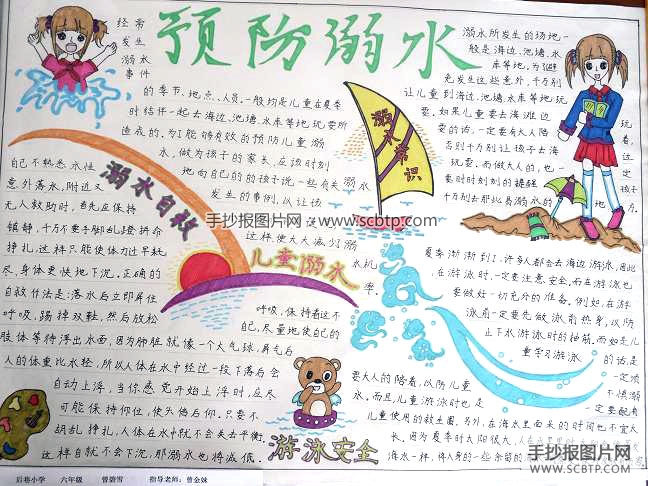 预防溺水
经常
发生
溺水
事件
的季节、地点、人员,一般均是儿童在夏季
时结伴一起去海边、池塘、水库等地玩耍所
造成的。为了能够有效的预防儿童溺
水,做为孩子的家长,应该时刻
地向自己的孩子说一些有关溺水
发生的事例,以让孩
这样便大大减少溺
水机
率。
溺水所发生的场地一
般是海边、池塘、水
库等地。为避
免发生这些意外,千万别
让儿童到海边、池塘、水库等地玩
耍。如果儿童要去海滩边
耍的话,一定要有大人陪
否则千万别让孩子去海
玩耍,而做大人的,也一
要时时刻刻的提醒
千万别去那些易溺水的
玩
着,
边
定
孩子
地方。
溺水常识
溺水自救
自己不熟悉水性
意外落水,附近又
无人救助时,首先应保持
镇静,千万不要手脚乱蹬拼命
挣扎,这样只能使体力过早耗
尽,身体更快地下沉。正确的
自救方法是:落水后立即屏住
呼吸,踢掉双鞋,然后放松
肢体等待浮出水面,因为肺脏就像一个大气球,屏气后
人的体重比水轻,所以人体在水中经过一段下落后会
自动上浮,当你感觉开始上浮时,应尽
可能保持仰位,使头后仰。只要不
胡乱挣扎,人体在水中就不会失去平衡。
这样自就不会下沉,那溺水也将减低。
呼吸,保持着这不
己,尽量地使自己的
儿童溺水
手抄报图片网 - www.scbtp.com
夏季渐渐到了,许多人都会去海边游泳,因此,
在游泳时,一定要注意安全。在游泳也
要做好一切充分的准备。例如,在游
泳前一定要先做泳前热身,以防
止下水游泳时的抽筋。而如是儿
童学习游泳
的话是
一定须
要大人的陪着,以防儿童
不慎溺
水。而且,儿童游泳时也是
一定要配有
儿童使用的救生圈。另外,在海水里面呆的时间也不宜太
长。因为夏季时太阳很大,
游泳安全
手抄报图片网
WWW.SCBTP.COM
后巷小学 六年级 曾碧雪 指导老师:曾金妹